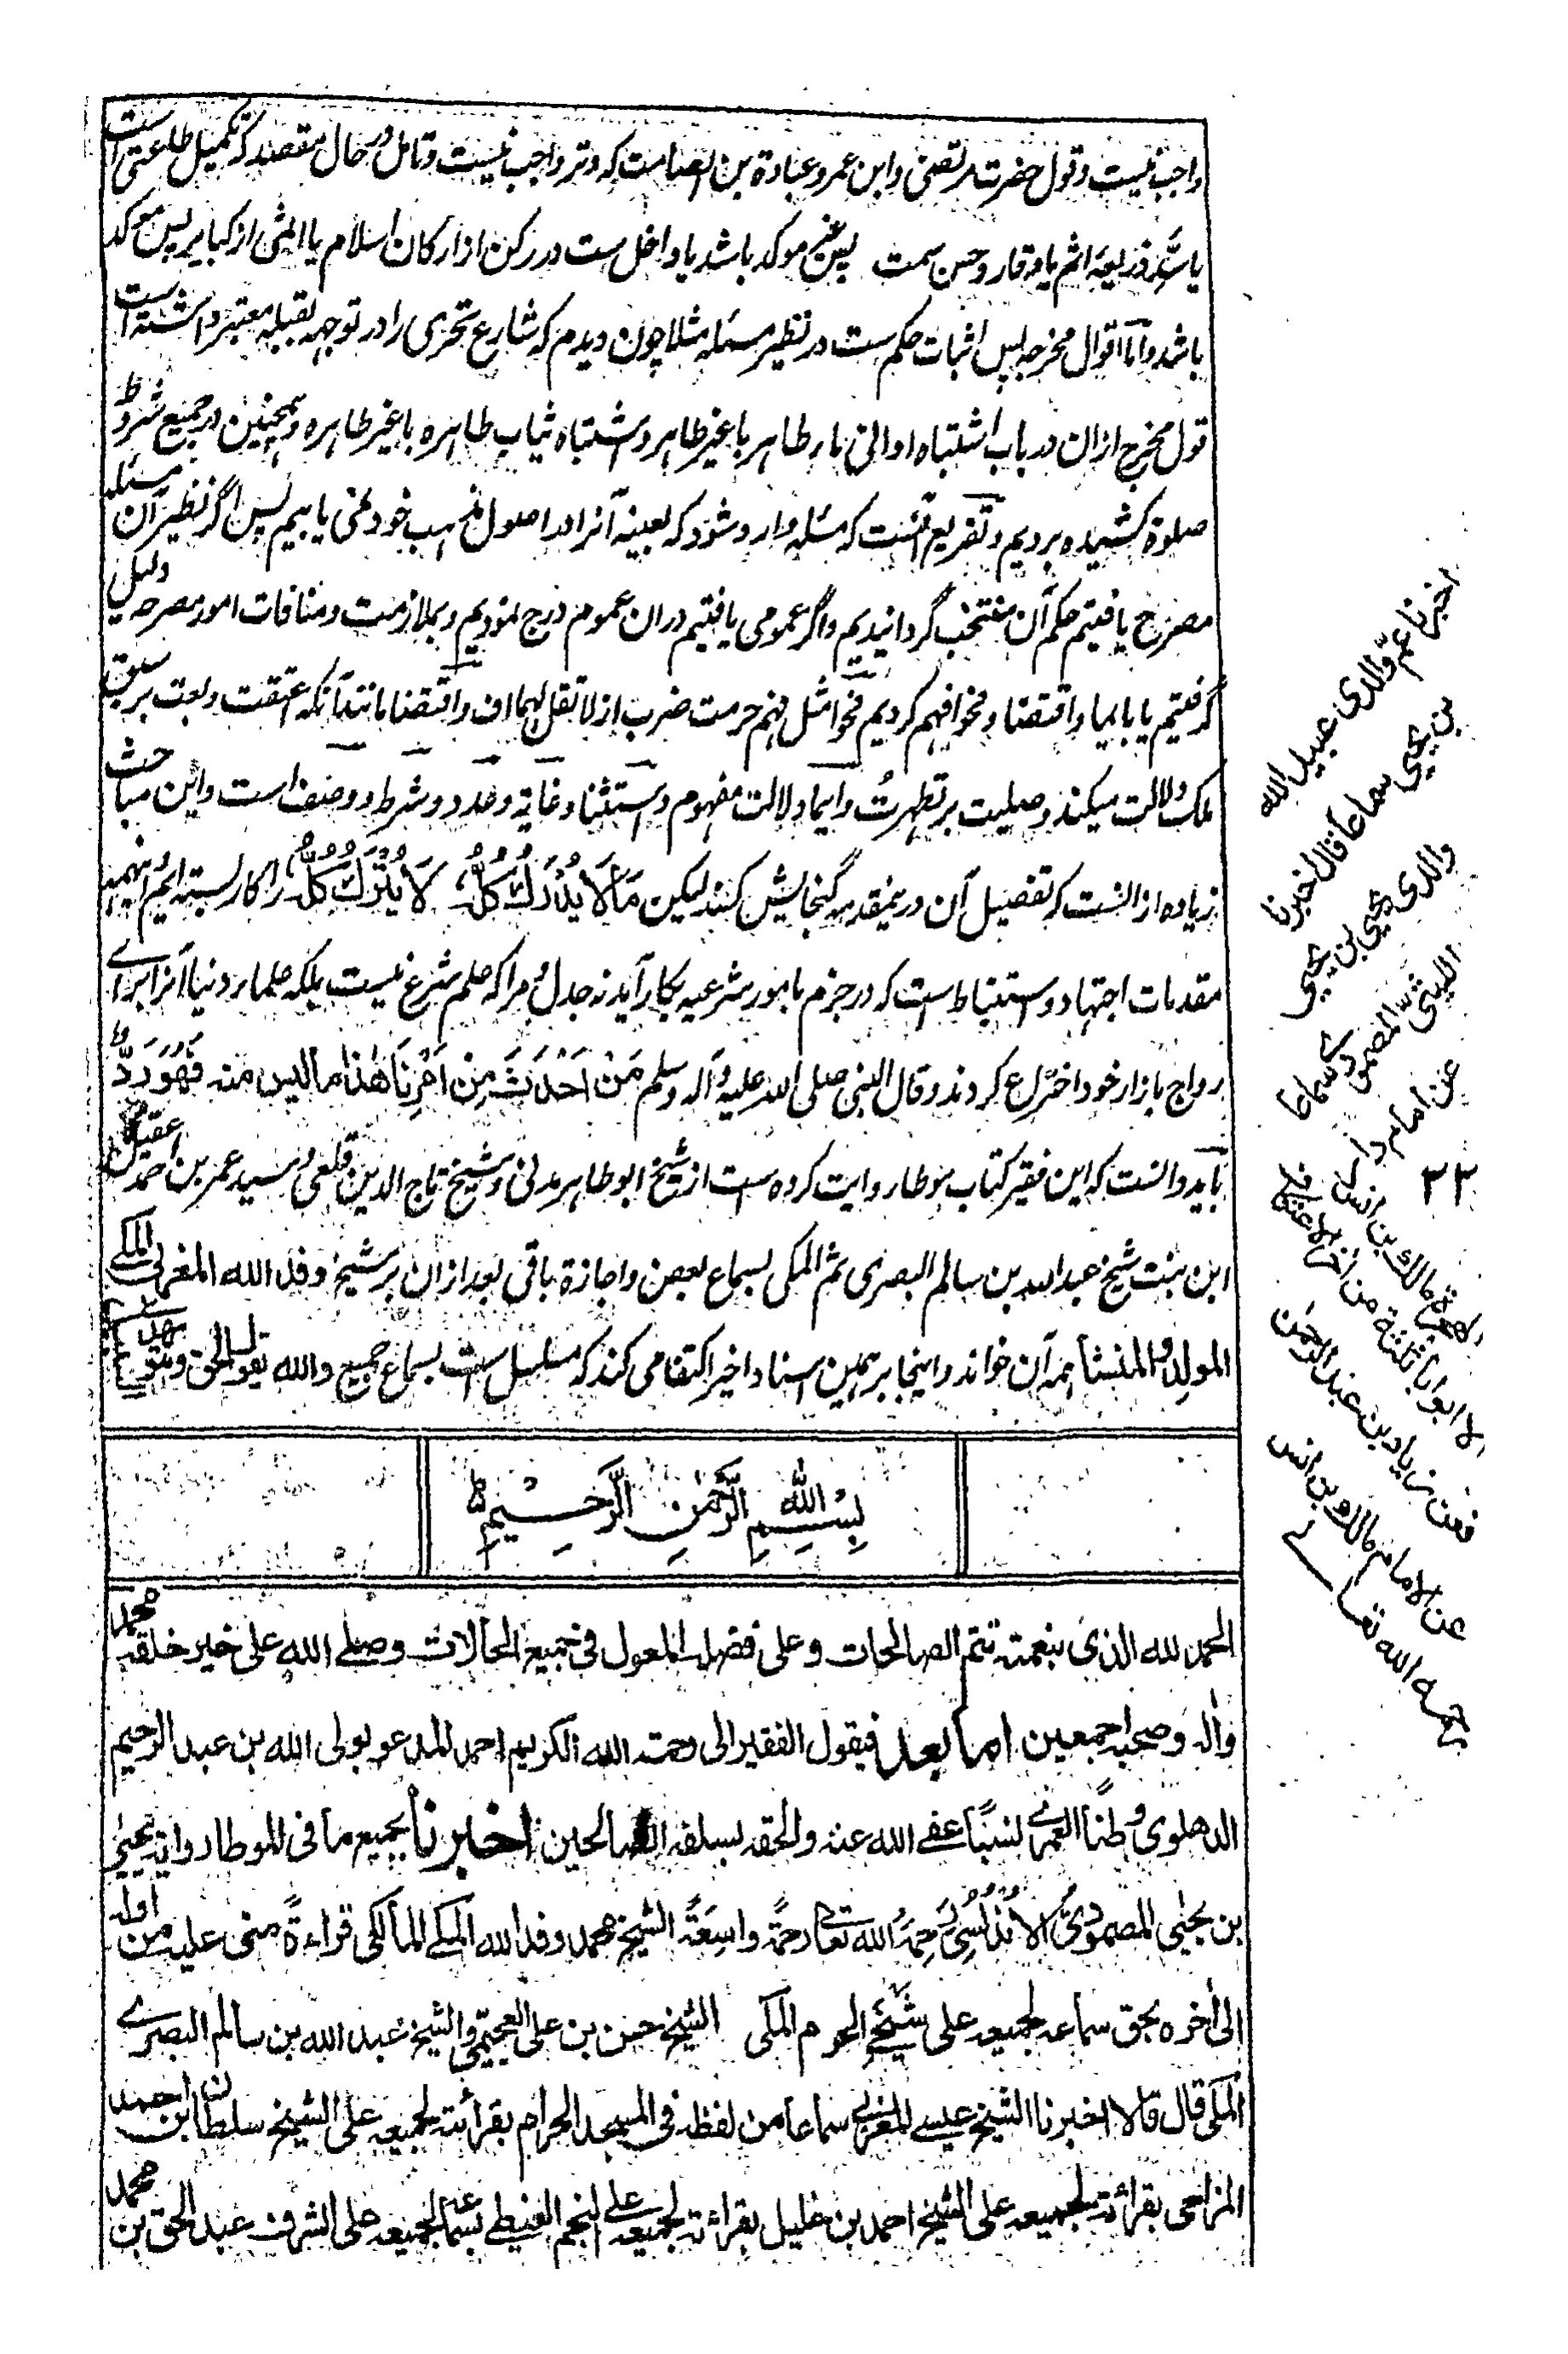 واجب نیست وقول حضرت مرتضی وابن عمر وعبادة بن الصامت که وتر واجب نیست وتامل در حال مقصد که تکمیل طاعتی است
یا سدّ ذریعهٔ اثم یا وقار وحسن سمت پس غیر موکد باشد یا داخل ست در رکن از ارکان اسلام یا اثمی از کبایر پس موکد
باشد واما اقوال مخرجه پس اثبات حکم ست در نظیر مسئله مثلا چون دیدم که شارع تحری را در توجه بقبله معتبر داشته است
قول مخرج ازان در باب اشتباه اوانی ماء طاهر با غیر طاهر واشتباه ثیاب طاهره با غیر طاهره وهمچنین در جمیع شروط
صلوة کشیده بردیم وتفریع آنست که مسئله وارد شود که بعینه آنرا در اصول مذهب خود نمی یابیم پس اگر نظیر آن مسئله
مصرح یافتیم حکم آن منتخب گردانیدیم واگر عمومی یافتیم دران عموم درج نمودیم وبملازمت ومنافات امور مصرحه دلیل
گرفتیم یا بایما واقتضا وفحوا فهم کردیم فحوا مثل فهم حرمت ضرب از لا تقل لهما اف واقتضا مانند آنکه اعتقت وبعت بر سبق
ملک دلالت میکند وصلیت بر تطهرتُ وایما دلالت مفهوم واستثنا وغایة وعدد وشرط ووصف است واین مباحث
زیاده از انست که تفصیل آن درینمقدمه گنجایش کند لیکن مَا لَا یُدْرَكُ كُلُّهُ لَا یُتْرَكُ كُلُّهُ را کار بسته ایم اینهمه
مقدمات اجتهاد واستنباط ست که در جزم بامور شرعیه بکار آید نه جدل ومرا که علم شرع نیست بلکه علماء دنیا آنرا برای
رواج بازار خود اختراع کردند وقال النبی صلی الله علیه وآله وسلم مَنْ اَحْدَثَ مِنْ اَمْرِنَا هٰذَا ما لیس منه فَهُوَ رَدٌّ
باید دانست که این فقیر کتاب موطا روایت کرده ست از شیخ ابو طاهر مدنی وشیخ تاج الدین قلعی وسید عمر بن احمد بن عقیل
ابن بنت شیخ عبد الله بن سالم البصری ثم المکی بسماع بعض واجازة باقی بعد ازان بر شیخ وفد الله المغربی المکی
المولد والمنشأ همه آن خواند واینجا بر همین اسناد اخیر اکتفا می کند که مسلسل ست بسماع جمیع والله یقول الحق وهو یهدی السبیل
بِسْمِ اللهِ الرَّحْمٰنِ الرَّحِیْمِ
الحمد لله الذی بنعمته تتم الصالحات وعلی فضله المعول فی جمیع الحالات وصلے الله علی خیر خلقه محمد
واٰله وصحبه اجمعین اما بعد فیقول الفقیر الی رحمة الله الکریم احمد المدعو بولی الله بن عبد الرحیم
الدهلوی وطنًا العمری نسبًا عفے الله عنه والحقه بسلفه الصالحین اخبرنا بجمیع ما فی الموطا روایة یحیی
بن یحیی المصمودی الاندلسی رَحِمَهُ الله تعالی رحمةً واسِعَةً الشیخ محمد وفد الله المکے المالکی قراءةً منی علیه من اوله
الی اٰخره بحق سماعه لجمیعه علی شَیْخَیِ الحرم المکی الشیخ حسن بن علی العجیمی والشیخ عبد الله بن سالم البصرے
المکی قال قالا اخبرنا الشیخ عیسے المغربی سماعا من لفظه فی المسجد الحرام بقرائته لجمیعه علی الشیخ سلطان بن احمد
المزاحی بقرائته لجمیعه علی الشیخ احمد بن خلیل بقرائته لجمیعه علے النجم الغیطے بسماعه لجمیعه علی الشرف عبد الحق بن محمد
اخبرنا عم والدی عبید الله
بن یحیی سماعا قال اخبرنا
والدی یحیی بن یحیی
اللیثی المصمودی سماعا
عن امام دار
الهجرة مالك بن انس
الا ابوابا ثلثة من اٰخر الاعتکاف
فعن زیاد بن عبد الرحمن
عن الامام مالك بن انس
رحمه الله تعالے
۲۲